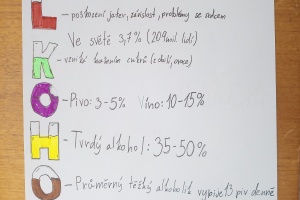 L – poškození jater, závislost, problémy se srdcem
Ve světě 3,7% (209 mil. lidí)
K – vzniká kvašením cukrů (z obilí, ovoce)
O – Pivo: 3-5% Víno: 10-15%
H – Tvrdý alkohol: 35-50%
O – Průměrný těžký alkoholik vypije 13 piv denně